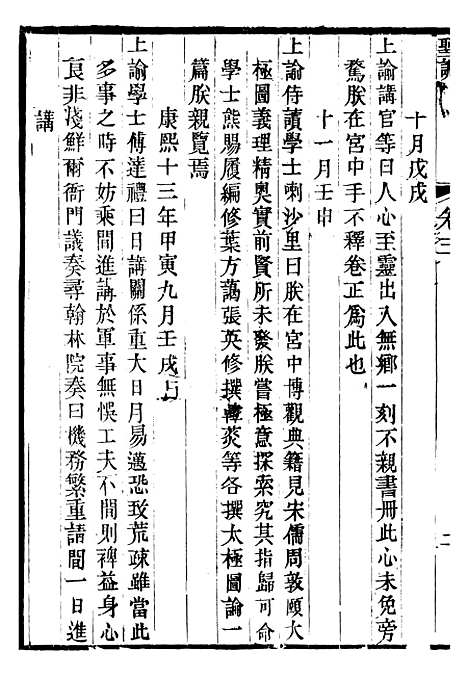 聖訓 卷三 二
十月戊戌
上諭講官等曰人心至靈出入無鄉一刻不親書冊此心未免旁
騖朕在宮中手不釋卷正為此也
十一月壬申
上諭侍讀學士喇沙里曰朕在宮中博觀典籍見宋儒周敦頤太
極圖義理精奧實前賢所未發朕嘗極意探索究其指歸可命
學士熊賜履編修葉方藹張英修撰韓菼等各撰太極圖論一
篇朕親覽焉
康熙十三年甲寅九月壬戌
上諭學士傅達禮曰日講關係重大日月易邁恐致荒疎雖當此
多事之時不妨乘間進講於軍事無悞工夫不間則裨益身心
良非淺鮮爾衙門議奏尋翰林院奏曰機務繁重請間一日進
講